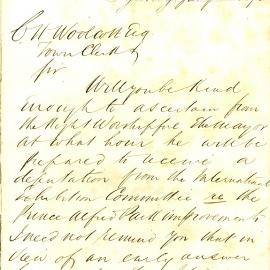 C. H. Woolcott Esq
Town Clerk
Sir
Will you be kind
enough to ascertain from
the Right Worshipful The Mayor
at what hour he will be
prepared to receive a
deputation from the International
Exhibition Committee re the
Prince Alfred Park improvements
I need not remind you that in
view of an early answer